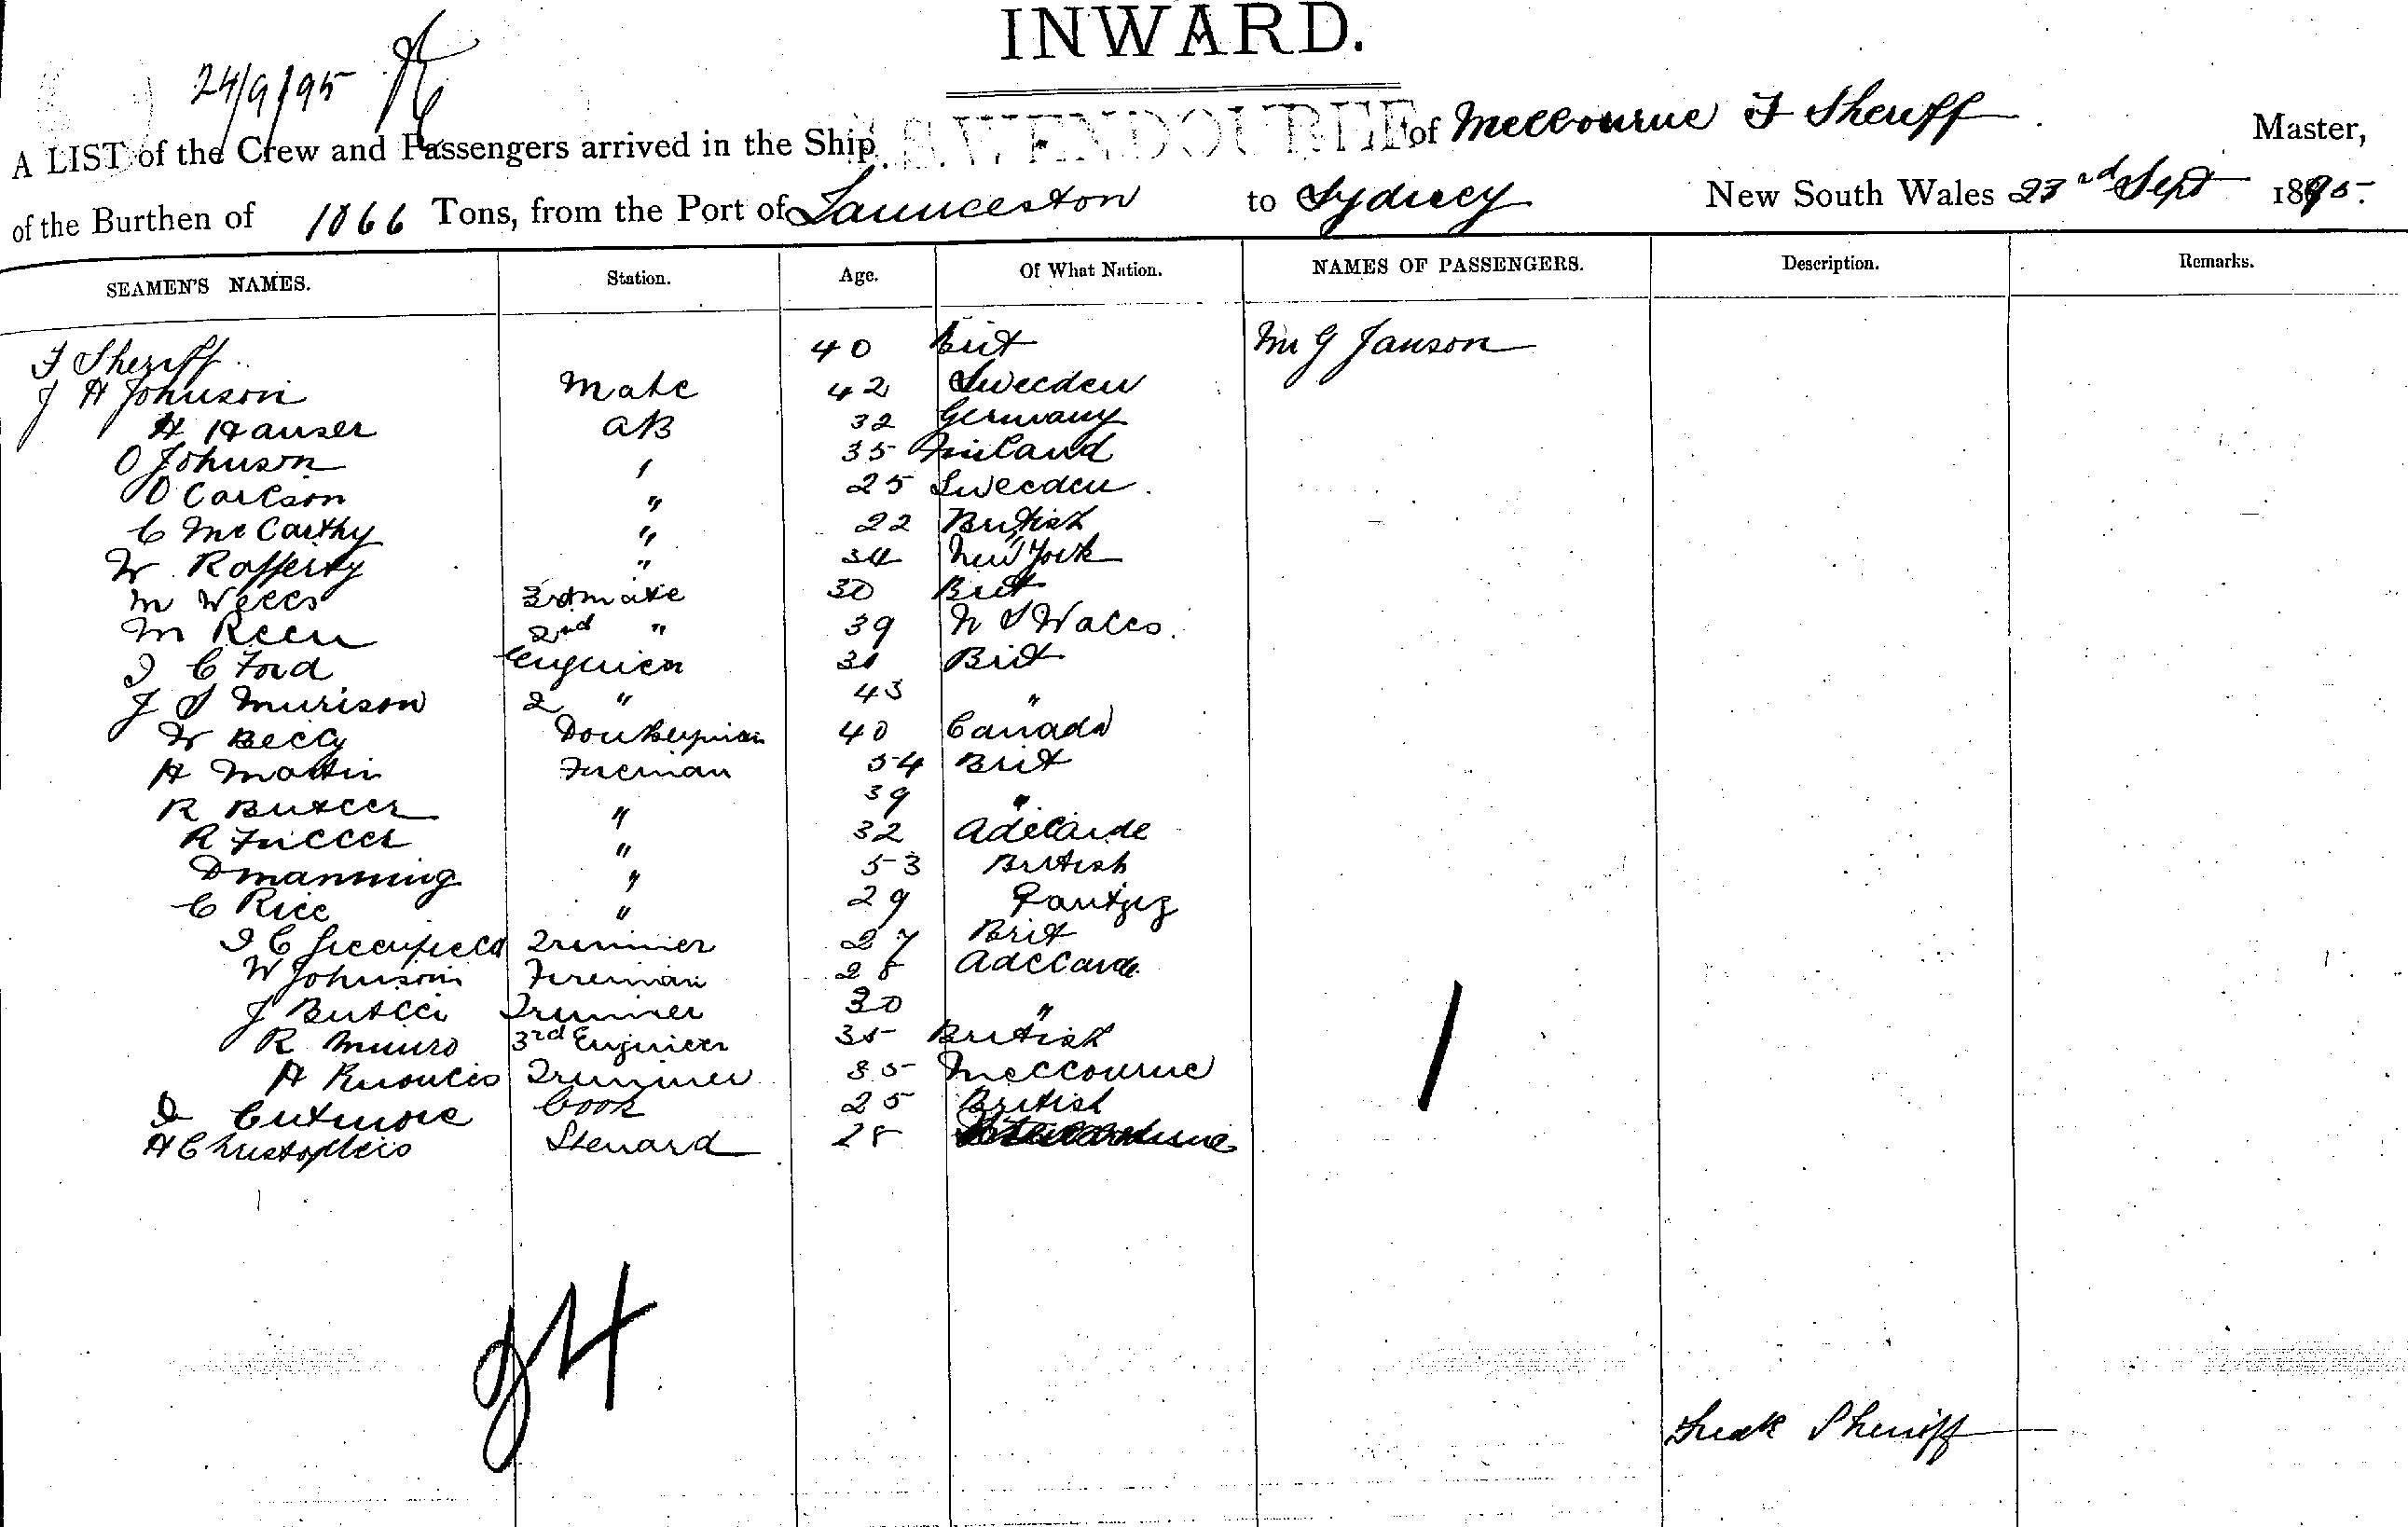 INWARD.
24/9/95
A LIST of the Crew and Passengers arrived in the Ship S.S. WENDOUREE of Melbourne F Sheriff Master,
of the Burthen of 1066 Tons, from the Port of Launceston to Sydney New South Wales 23rd Sept 1895.
SEAMEN'S NAMES. Station. Age. Of What Nation. NAMES OF PASSENGERS. Description. Remarks.
F Sheriff 40 Brit Mr G Janson
J A Johnson Mate 42 Sweeden
H Hauser AB 32 Germany
O Johnson " 35 Finland
O Carlson " 25 Sweeden
C McCarthy " 22 British
W Rafferty " 34 New York
M Wells 3rd mate 30 Brit
M Keen 2nd " 39 N S Wales.
I C Ford Engineer 31 Brit
J S Murison 2 " 43 "
W Kelly Donkeyman 40 Canada
H Martin Fireman 54 Brit
R Butler " 39 "
R Fuller " 32 Adelaide
D Manning " 53 British
C Rice " 29
I C Greenfield Trimmer 27 Brit
W Johnson Fireman 28 Adelaide
J Butler Trimmer 30 "
R Munro 3rd Engineer 35 British
H Knowles Trimmer 35 Melbourne
I Cutmore Cook 25 British
H Christopheis Steward 28
1
24
Fredk Sheriff